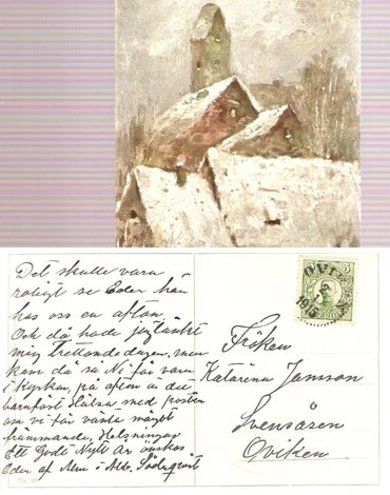 Det skulle vara
roligt se Eder här
hos oss en afton.
Och då hade jag tänkt
mig trettondedagen, men
kom då så Ni får vara
i Kyrkan, på afton är det
barnfäst Hälsa med posten
om vi får vänta något
främmande, Helsningar
Ett Godt Nytt År önskas
Eder af Alm i Alb. Söderqvist
OVIKEN
1915
5
Fröken
Katarina Jansson
Svensåsen
Oviken